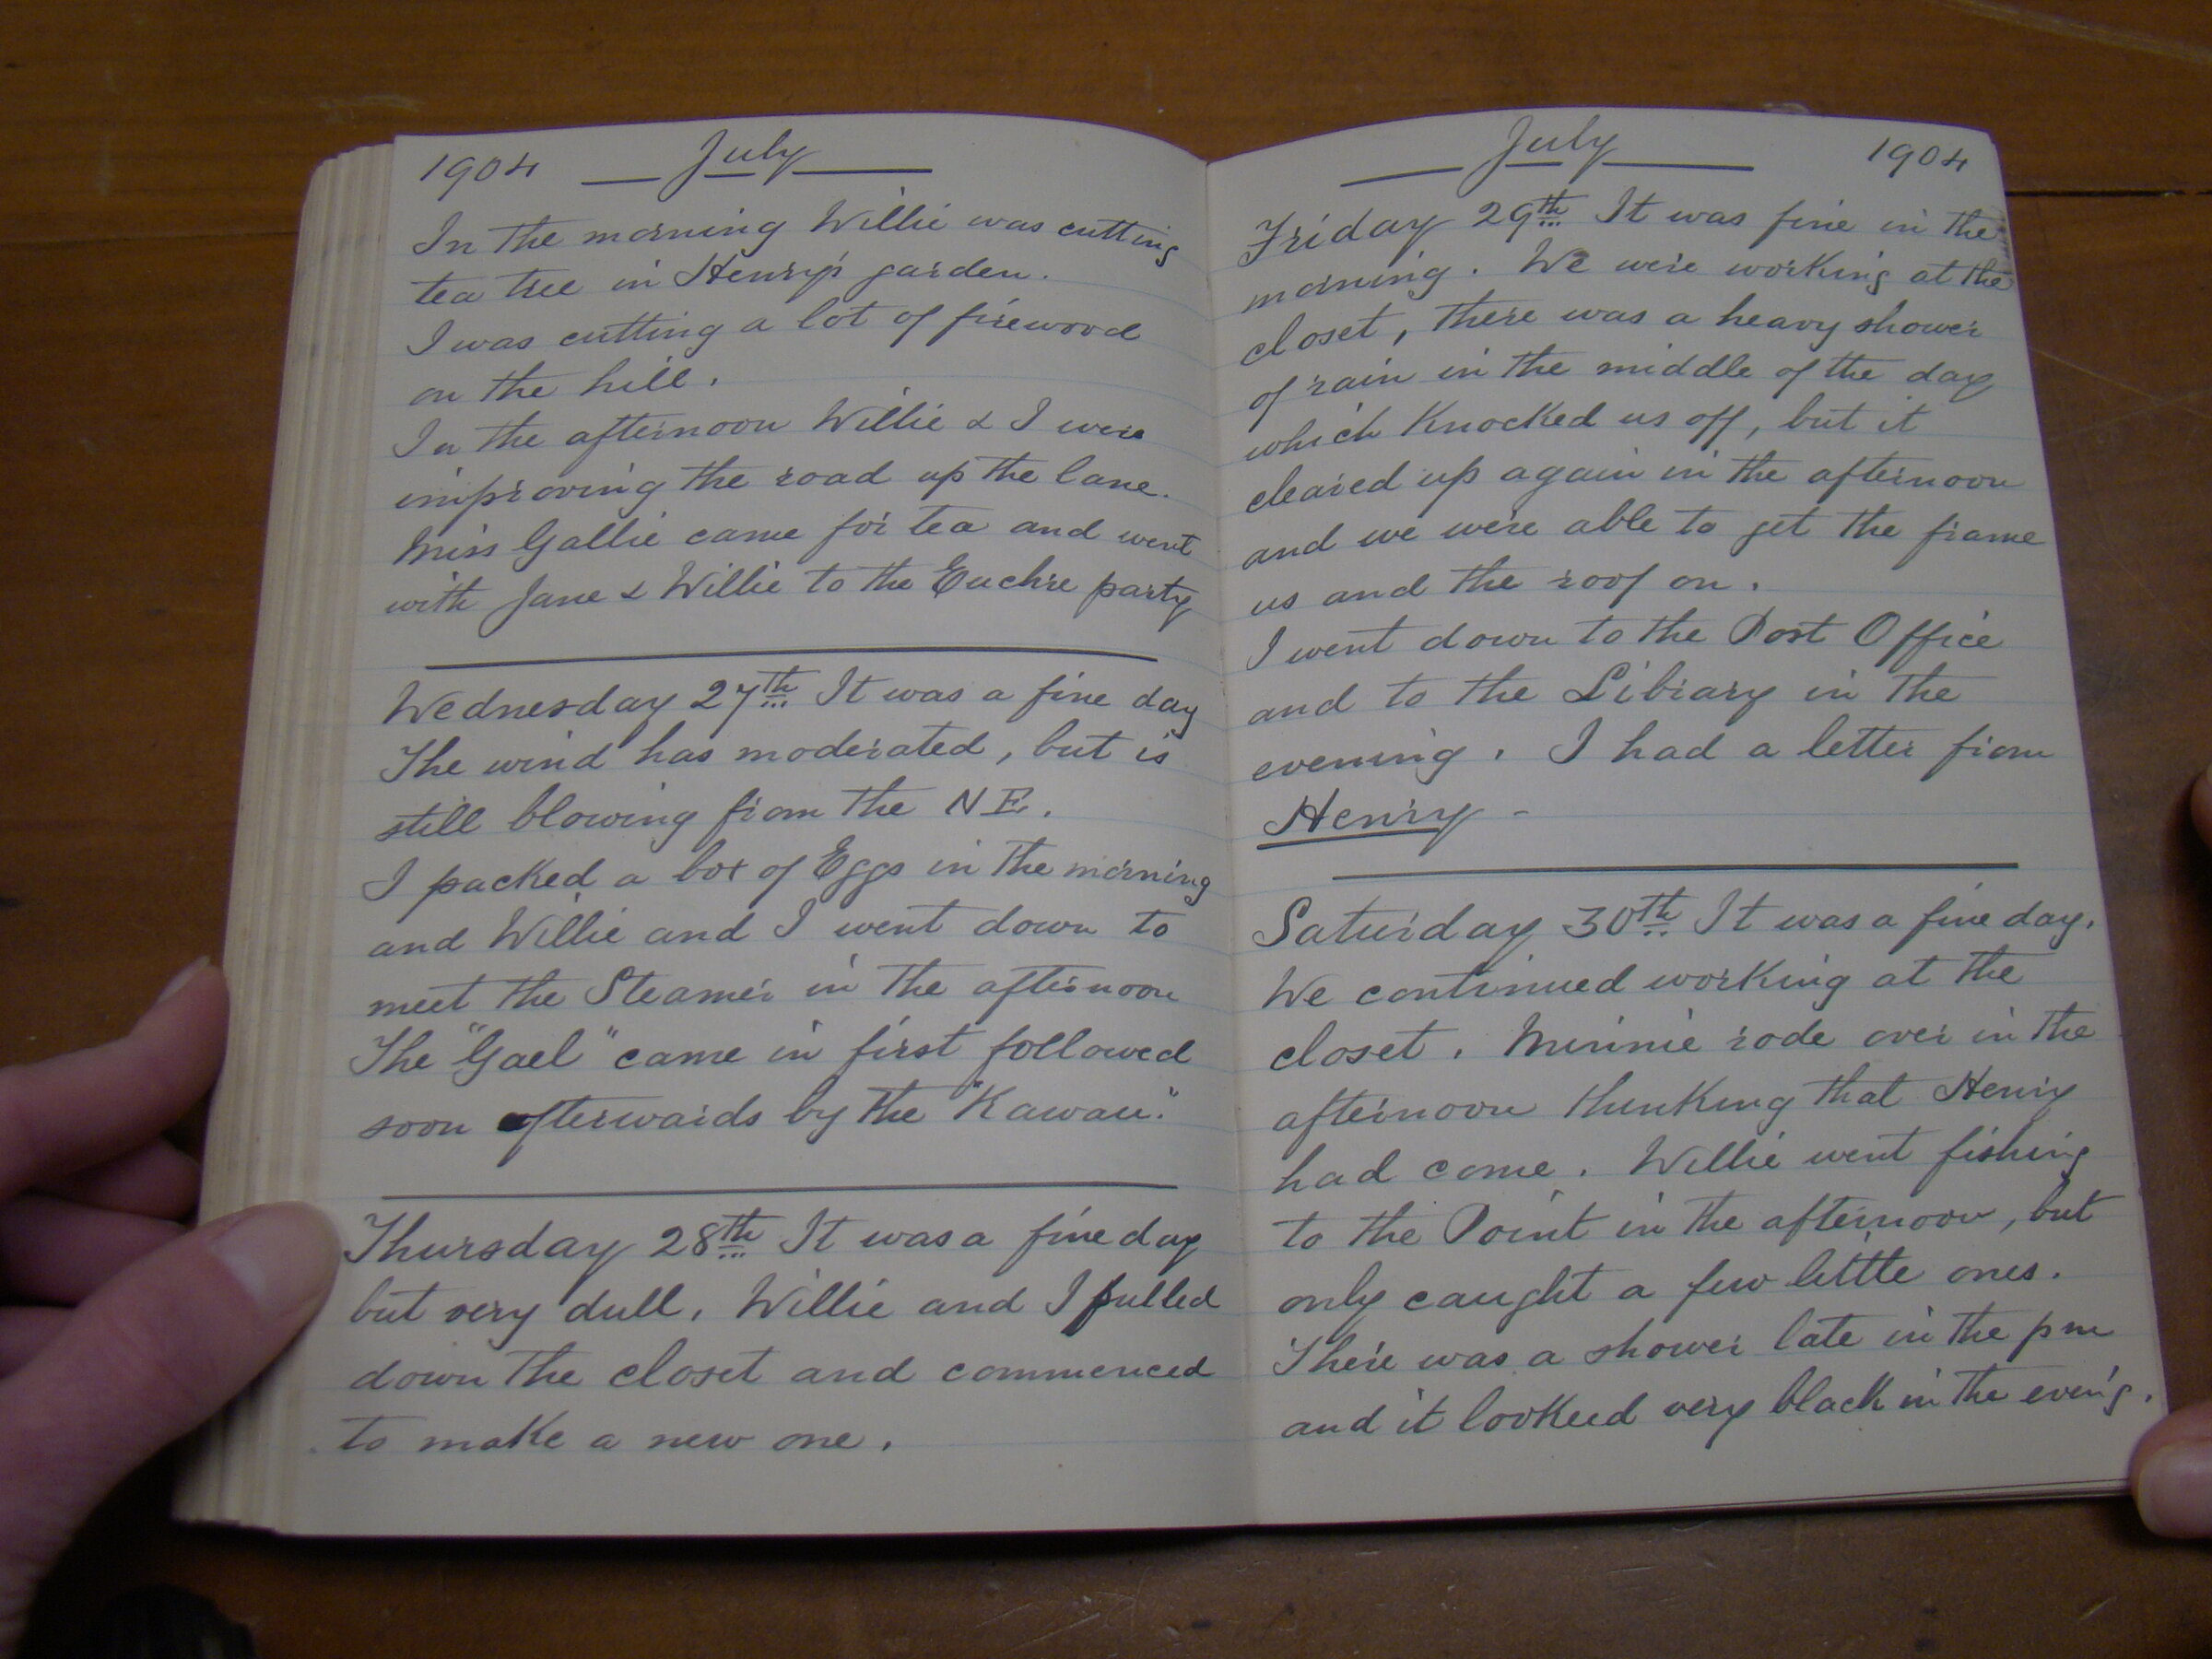 1904 July
In the morning Willie was cutting
tea tree in Henry's garden.
I was cutting a lot of firewood
on the hill.
In the afternoon Willie & I were
improving the road up the lane.
Miss Gallie came for tea and went
with Jane & Willie to the Euchre party
Wednesday 27th It was a fine day
The wind has moderated, but is
still blowing from the NE.
I packed a box of Eggs in the morning
and Willie and I went down to
meet the Steamer in the afternoon
The "Gael" came in first followed
soon afterwards by the "Kawau."
Thursday 28th It was a fine day
but very dull. Willie and I pulled
down the closet and commenced
to make a new one.
July 1904
Friday 29th It was fine in the
morning. We were working at the
closet, there was a heavy shower
of rain in the middle of the day
which Knocked us off, but it
cleared up again in the afternoon
and we were able to get the frame
us and the roof on.
I went down to the Post Office
and to the Library in the
evening. I had a letter from
Henry -
Saturday 30th It was a fine day.
We continued working at the
closet. Minnie rode over in the
afternoon thinking that Henry
had come. Willie went fishing
to the Point in the afternoon, but
only caught a few little ones.
There was a shower late in the pm
and it looked very black in the even'g.